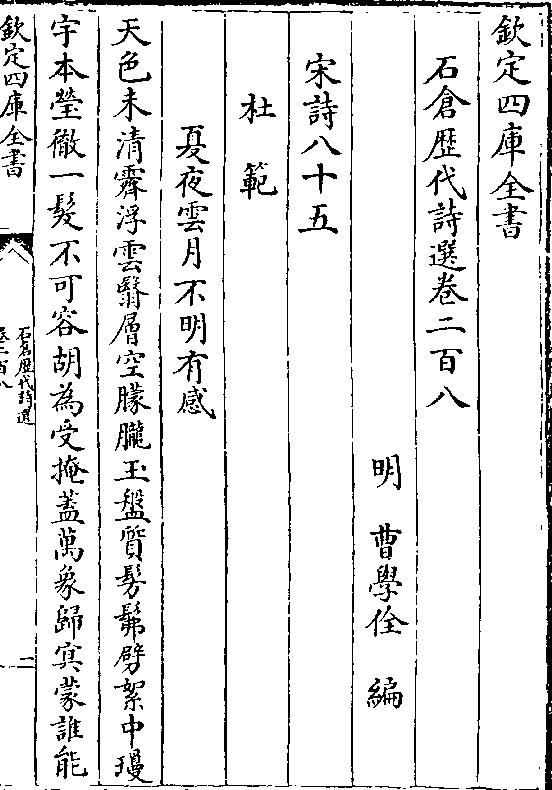 欽定四庫全書
石倉歴代詩選卷二百八
明 曹學佺 編
宋詩八十五
杜範
夏夜雲月不明有感
天色未清霽浮雲翳層空朦朧玉盤質髣髴劈絮中瓊
宇本瑩徹一髮不可容胡為受掩蓋萬象歸冥蒙誰能
欽定四庫全書
石倉歴代詩選
卷二百八